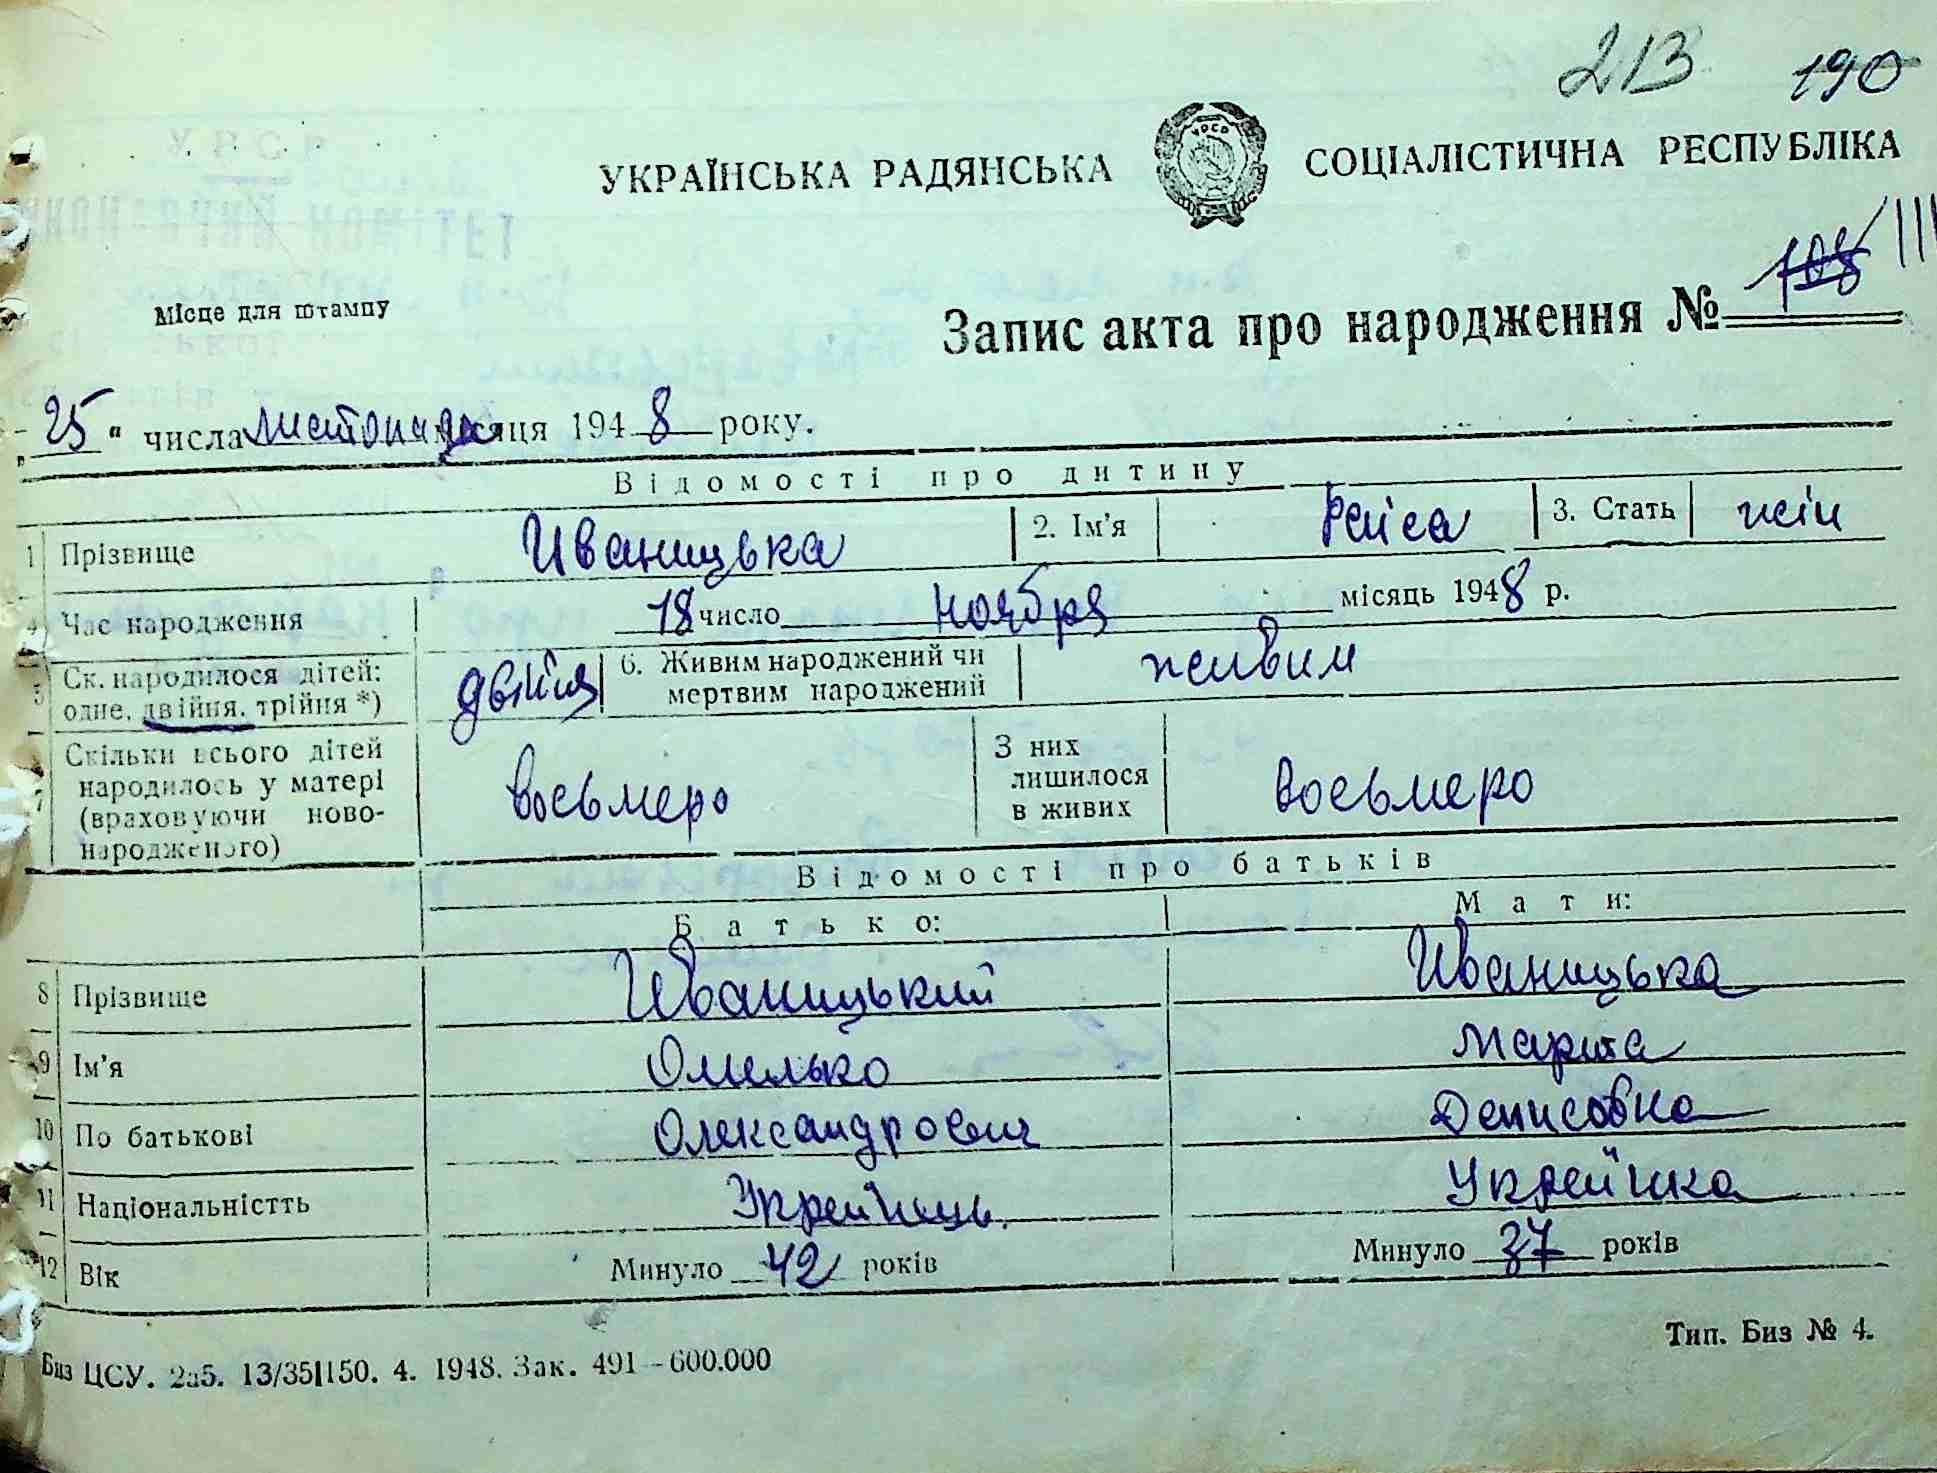 213 190
УКРАЇНСЬКА РАДЯНСЬКА СОЦІАЛІСТИЧНА РЕСПУБЛІКА
Місце для штампу
Запис акта про народження № 108 111
„25“ числа листопада місяця 1948 року.
Відомості про дитину
1 Прізвище Иваницька 2. Ім'я Раїса 3. Стать жін
4 Час народження 18 число ноября місяць 1948 р.
5 Ск. народилося дітей: одне, двійня, трійня *) двійня 6. Живим народжений чи мертвим народжений живим
7 Скільки всього дітей народилось у матері (враховуючи новонародженого) восьмеро З них лишилося в живих восьмеро
Відомості про батьків
Батько: Мати:
8 Прізвище Иваницький Иваницька
9 Ім'я Омелько Марта
10 По батькові Олександрович Денисовна
11 Національністть Українець. Українка
12 Вік Минуло 42 років Минуло 37 років
Биз ЦСУ. 2а5. 13/35|150. 4. 1948. Зак. 491–600.000 Тип. Биз № 4.